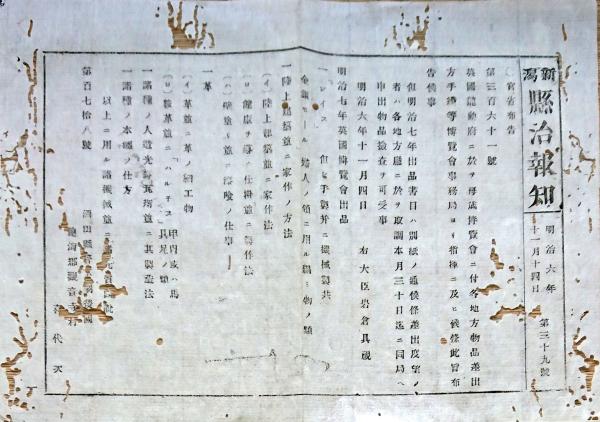 新潟縣治報知
明治六年
十一月十四日
第三十九號
官省布告
第三百六十一號
英國龍動府ニ於テ毎歳博覽會ニ付各地方物品差出
方手續等博覽會事務局ヨリ指揮ニ及ヒ候條此旨布
告候事
但明治七年出品書目ハ別紙ノ通候條差出度望ノ
者ハ各地方廳ニ於テ取調本月三十日迄ニ同局ヘ
申出物品檢査ヲ可受事
明治六年十一月四日 右大臣岩倉具視
明治七年英國博覽會出品
一レイス 但シ手製并ニ機械製共
婦人ノ領ニ用ル織ミ物ノ類
一陸上建築並ニ家作ノ方法
(イ)陸上建築並ニ家作
(ロ)健康ヲ 仕掛並ニ製作法
(ハ) 仕事
一革
(イ)革並ニ革ノ細工物
(ロ)鞍革並ニ「ハルチス」 甲冑或ハ馬具足ノ類
一諸種ノ人造光 並ニ其製造法
一諸種ノ本 ノ仕方
以上ニ用ル諸機械並ニ
第百七拾八號
觀音寺村